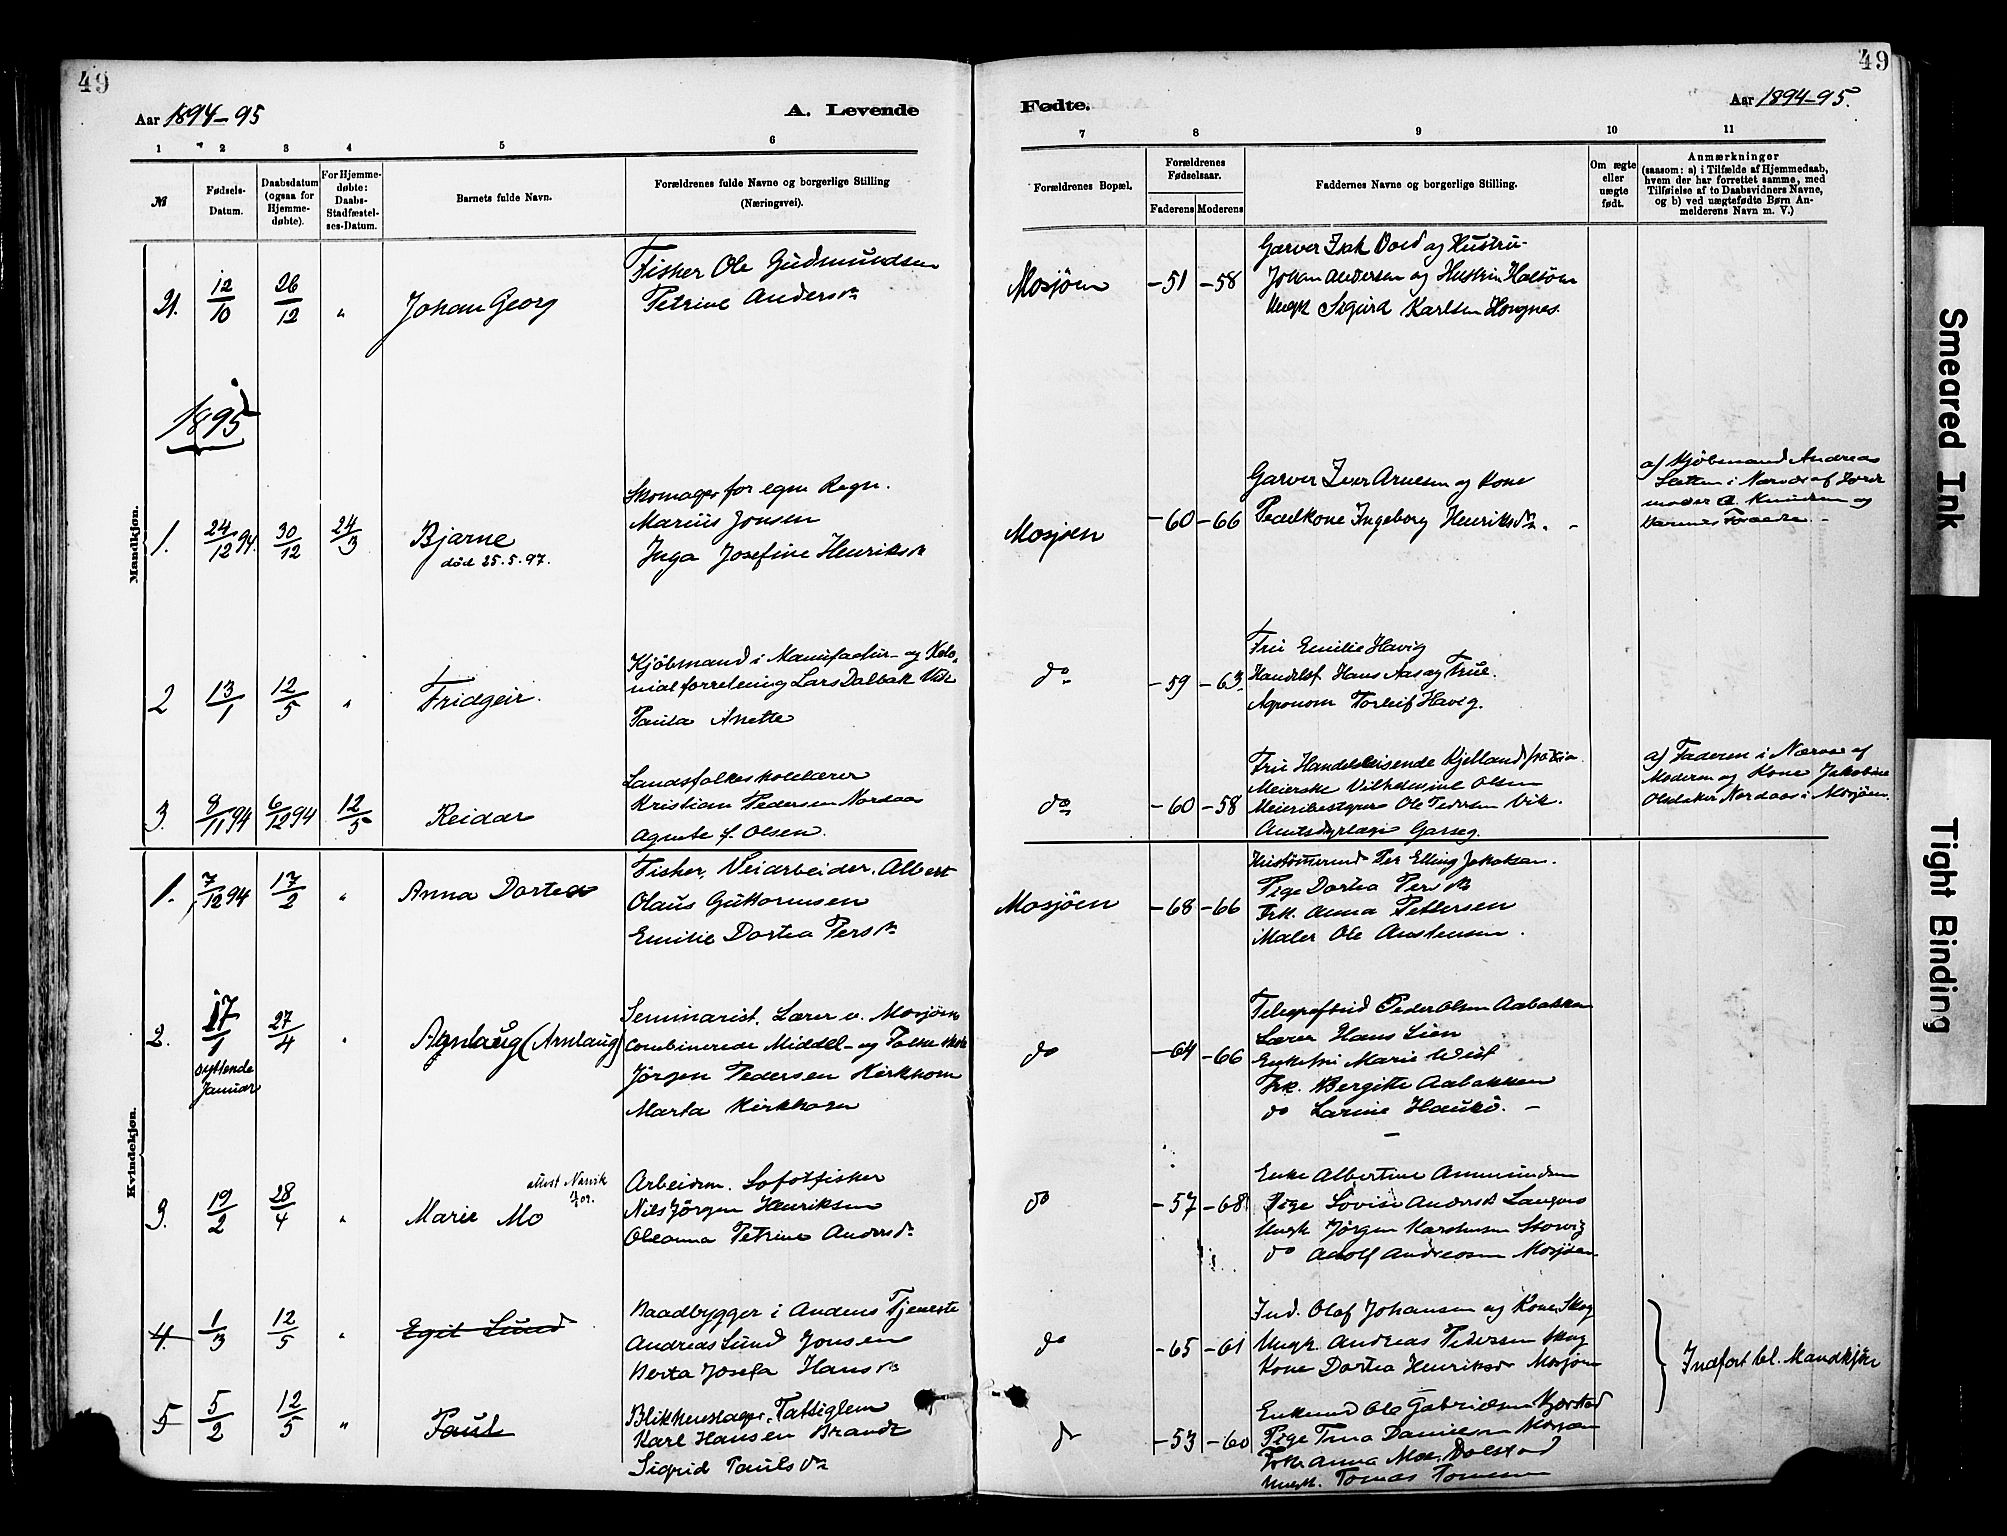 49
49
Aar 1894-95
A. Levende
Fødte.
Aar 1894-95.
1 2 3 4 5 6 7 8 9 10 11
№
Fødsels-Datum.
Daabsdatum (ogsaa for Hjemme-døbte).
For Hjemme-døbte: Daabs-Stadfæstel-ses-Datum.
Barnets fulde Navn.
Forældrenes fulde Navne og borgerlige Stilling
(Næringsvei).
Forældrenes Bopæl.
Forældrenes Fødselsaar.
Faderens Moderens
Faddernes Navne og borgerlige Stilling.
Om ægte eller uægte født.
Anmærkninger
(saasom: a) i Tilfælde af Hjemmedaab,
hvem der har forrettet samme, med
Tilføielse af to Daabsvidners Navne,
og b) ved uægtefødte Børn An-
melderens Navn m. V.)
Mandkjøn.
21. 12/10 26/12 " Johan Georg
Fisker Ole Gudmundsen
Petrine Andersdr
Mosjøen -51 -58
Garver Isak Vold og Hustru
Johan Andersen og Hustru Halsøen
Ungk Sigurd Karlsen Hongnes.
1895
1. 24/12 94. 30/12 24/3 Bjarne
død 25.5.97.
Skomager for egen Regn.
Marius Jonsen
Inga Josefine Henriksdr
Mosjøen -60 -66
Garver Iver Arnesen og Kone
Pedelkone Ingeborg Henriksdr.
a) Kjøbmand Andreas
Sletten i Nærvær af Jord-
moder A. Knudsen og
Barnets Forældre.
2 13/1 12/5 " Fridgeir.
Kjøbmand i Manufactur- og Kolo-
nialforretning Lars Dalbak Vik
Paula Anette
do -59 -63
Fru Emilie Havig
Handelsf. Hans Aas og Frue.
Agronom Torleif Havig.
3. 8/11 94 6/12 94 12/5 Reidar
Landsfolkeskolelærer
Kristian Pedersen Nordaas
Agnete f. Olsen.
do -60 -58
Fru Handelsreisende Kjelland fra Kria
Meierske Vilhelmine Olsen
Meieribestyrer Ole Pedersen Vik.
Amtsdyrlæge Garseg.
a) Faderen i Nærvær af
Moderen og Kone Jakobine
Olsdatter Nordaas i Mosjøen.
Kvindekjøn.
1. 7/12 94 17/2 " Anna Dortea
Fisker, Veiarbeider. Albert
Olaus Guttormsen
Emilie Dortea Persdr
Mosjøen -68 -66
Per Elling Jakobsen.
Pige Dortea Persdr
Frk. Anna Pettersen
Maler Ole Austensen.
2. 17/1 27/4 "
syttende
Januar
Agnlaug (Arnlaug)
Seminarist. Lærer v. Mosjøens
combinerede Middel- og Folkeskole
Jörgen Pedersen Kirkhorn
Marta Kirkhorn
do -64 -66
Telegrafbud Peder Olsen Aabakken
Lærer Hans Lien
Enkefru Marie Wist
Frk. Bergitte Aabakken
do Larine Haukø.
3. 19/2 28/4 " Marie Mo
attest Narvik
Arbeidsm. Lofotfisker
Nils Jörgen Henriksen
Oleanna Petrine Andersdr
do -57 -68
Enke Albertine Ammundsen
Pige Lovise Andersdr Langnes
Ungk. Jørgen Karstensen Storvig
do Adolf Andreasen Mosjøen
4. 1/3 12/5 " Egil Lund
Baadbygger i Andens Tjeneste
Andreas Lund Jonsen
Berta Josefa Hansdr
do -65 -61
Ind. Olaf Johansen og Kone Skog
Ungk. Andreas Pedersen Skog
Kone Dortea Henriksdr Mosjøen
Indført bl. Mandkjøn
5 5/2 12/5 " Paul
Blikkenslager,
Karl Hansen Brandt
Sigrid Paulsdr
do -53 -60
Enkemd Ole Gabrielsen Kjørstad
Pige Trna Danielsen Mosjøen
Frk. Anna Moe, Dolstad
Ungk. Tomas Tomesen
Smeared Ink
Tight Binding